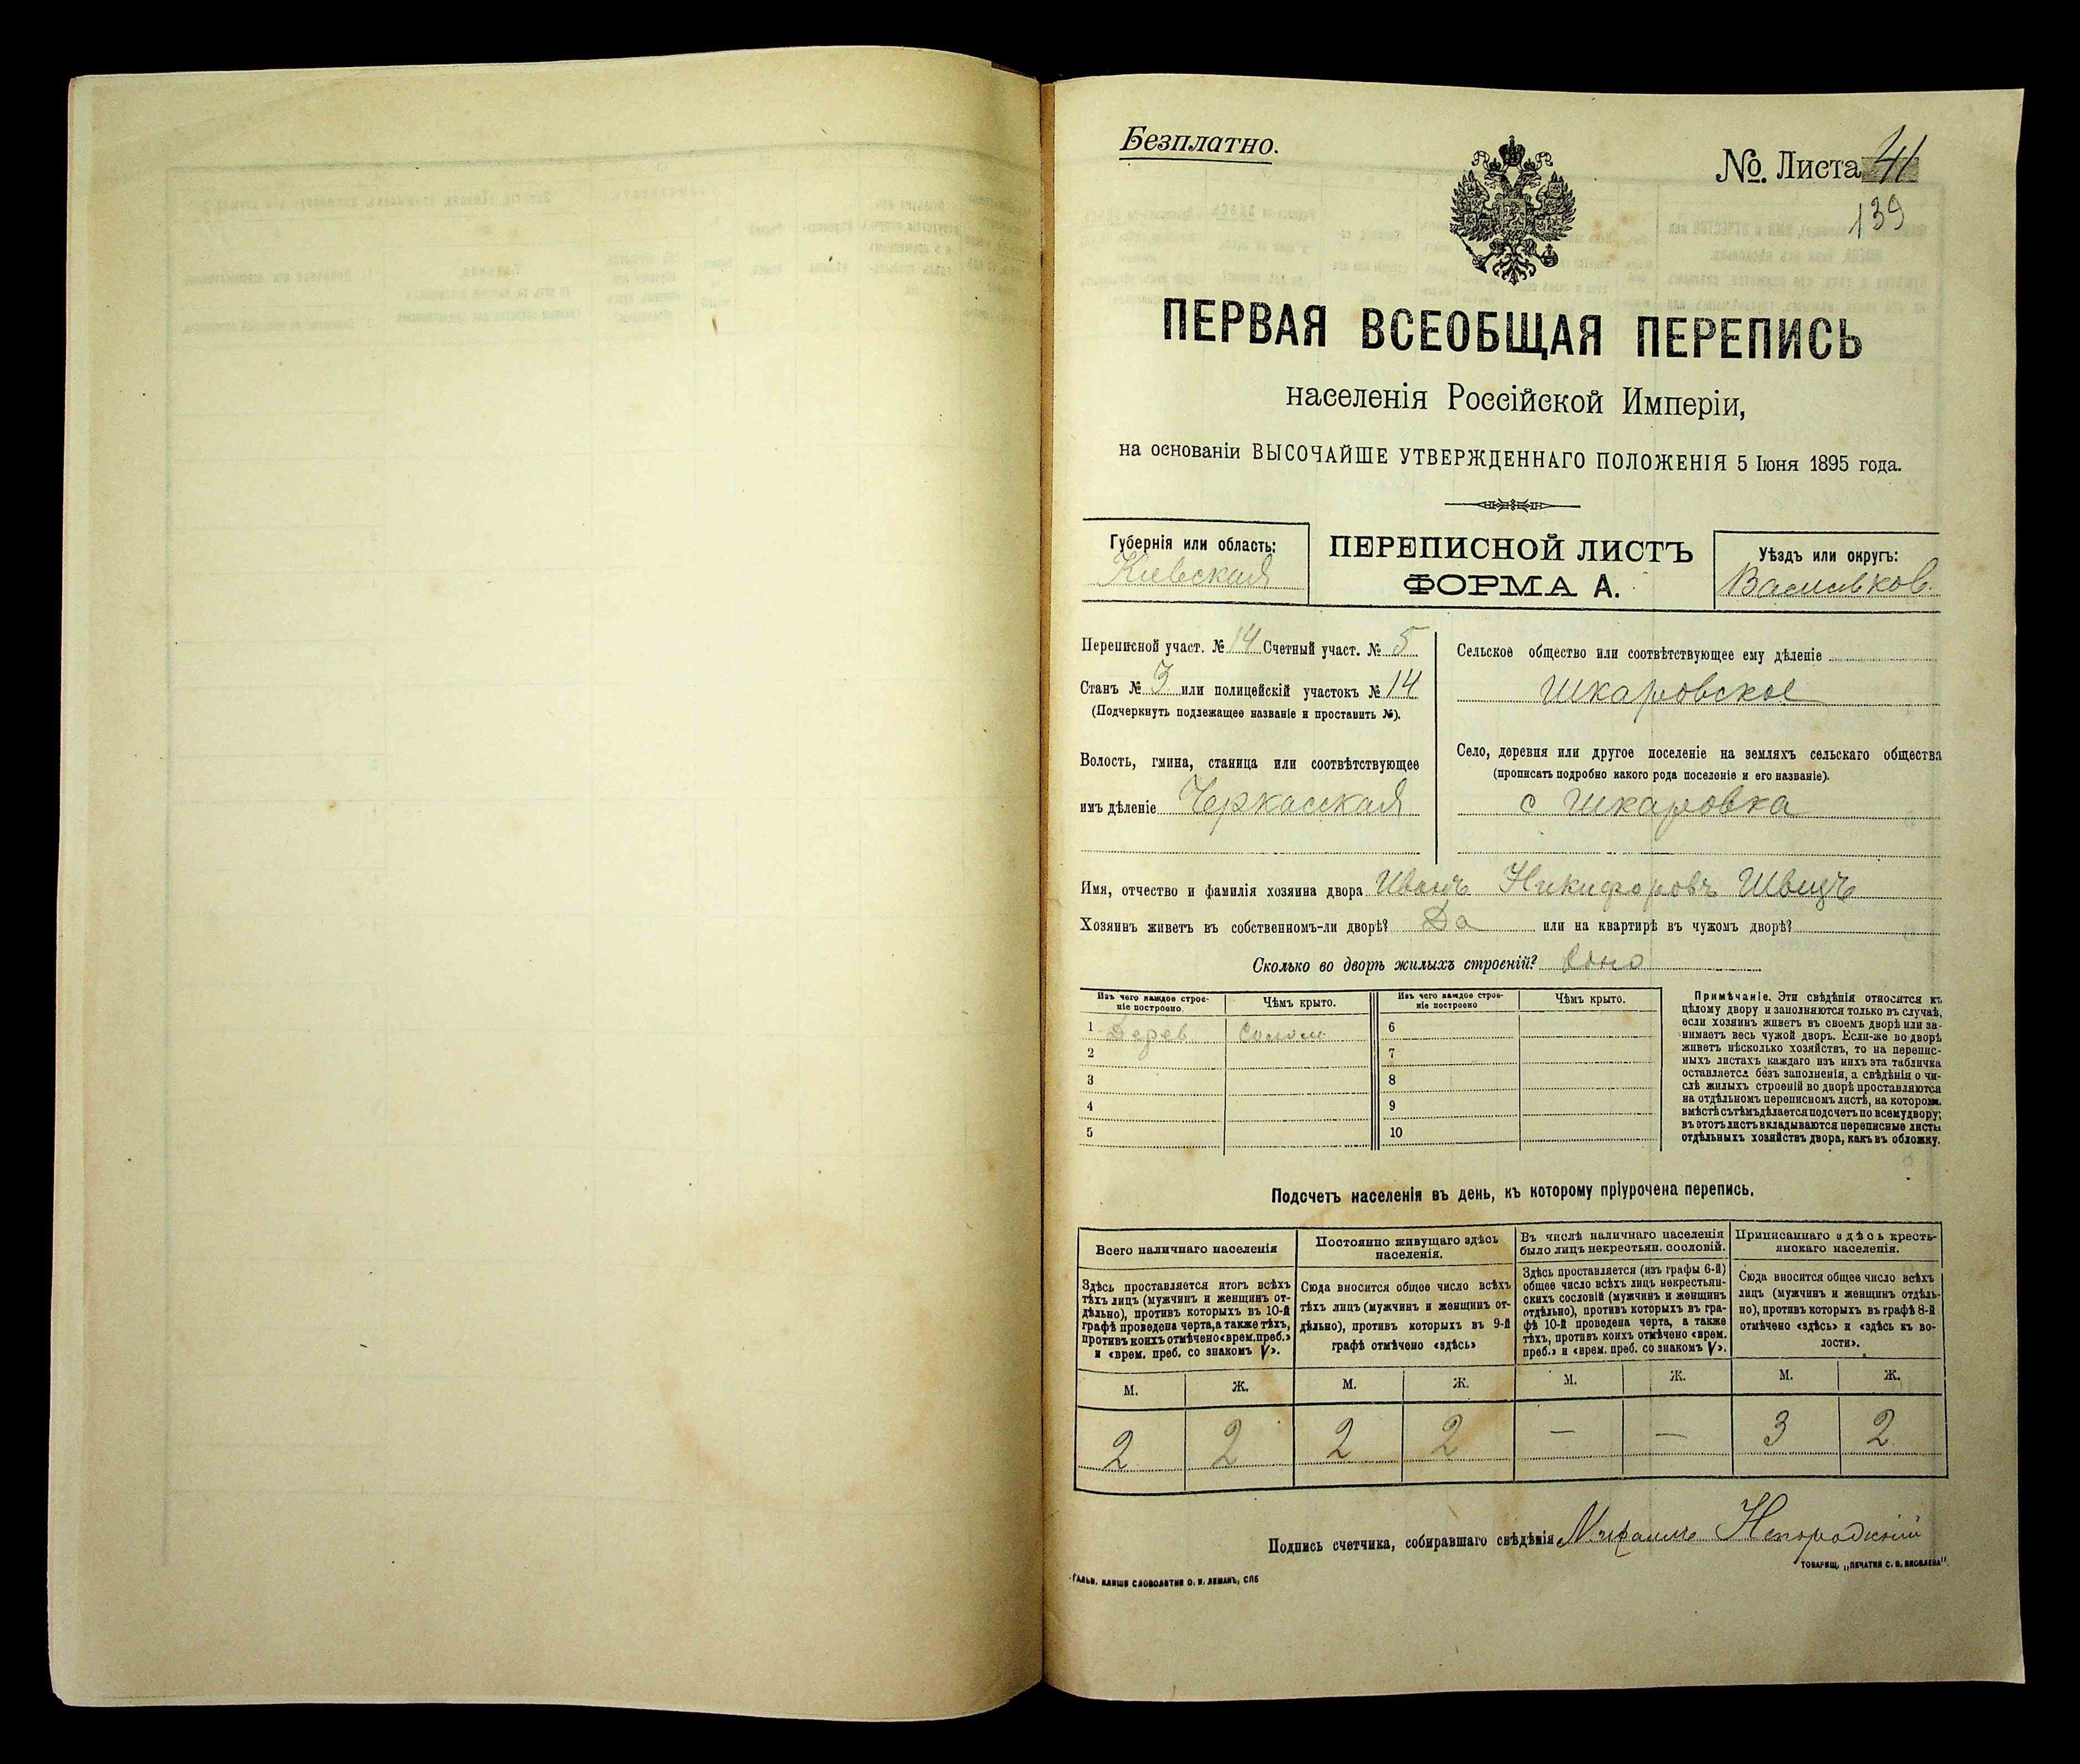 Безплатно.
№ Листа 41
139
ПЕРВАЯ ВСЕОБЩАЯ ПЕРЕПИСЬ
населенія Россійской Имперіи,
на основаніи ВЫСОЧАЙШЕ УТВЕРЖДЕННАГО ПОЛОЖЕНІЯ 5 Іюня 1895 года.
Губернія или область:
Кіевская
ПЕРЕПИСНОЙ ЛИСТЪ
ФОРМА А.
Уѣздъ или округъ:
Васильков.
Переписной участ. № 14 Счетный участ. № 5
Станъ № 3 или полицейскій участокъ № 14
(Подчеркнуть подлежащее названіе и проставить №).
Волость, гмина, станица или соотвѣтствующее
имъ дѣленіе Черкасская
Сельское общество или соотвѣтствующее ему дѣленіе
Шкаровское
Село, деревня или другое поселеніе на земляхъ сельскаго общества
(прописать подробно какого рода поселеніе и его названіе).
с Шкаровка
Имя, отчество и фамилія хозяина двора Иванъ Никифоровъ Швецъ
Хозяинъ живетъ въ собственномъ-ли дворѣ? Да или на квартирѣ въ чужомъ дворѣ?
Сколько во дворѣ жилыхъ строеній? Одно
Изъ чего каждое строе-
ніе построено.
Чѣмъ крыто.
Изъ чего каждое строе-
ніе построено
Чѣмъ крыто.
1 Дерев Солом 6
2 7
3 8
4 9
5 10
Примѣчаніе. Эти свѣдѣнія относятся къ
цѣлому двору и заполняются только въ случаѣ,
если хозяинъ живетъ въ своемъ дворѣ или за-
нимаетъ весь чужой дворъ. Если-же во дворѣ
живетъ нѣсколько хозяйствъ, то на перепис-
ныхъ листахъ каждаго изъ нихъ эта табличка
оставляется безъ заполненія, а свѣдѣнія о чи-
слѣ жилыхъ строеній во дворѣ проставляются
на отдѣльномъ переписномъ листѣ, на котором.
вмѣстѣ съ тѣмъ дѣлается подсчетъ по всему двору;
въ этотъ листъ вкладываются переписные листы
отдѣльныхъ хозяйствъ двора, какъ въ обложку.
Подсчетъ населенія въ день, къ которому пріурочена перепись.
Всего наличнаго населенія
Здѣсь проставляется итогъ всѣхъ
тѣхъ лицъ (мужчинъ и женщинъ от-
дѣльно), противъ которыхъ въ 10-й
графѣ проведена черта, а также тѣхъ,
противъ коихъ отмѣчено «врем. преб.»
и «врем. преб. со знакомъ V».
Постоянно живущаго здѣсь
населенія.
Сюда вносится общее число всѣхъ
тѣхъ лицъ (мужчинъ и женщинъ от-
дѣльно), противъ которыхъ въ 9-й
графѣ отмѣчено «здѣсь»
Въ числѣ наличнаго населенія
было лицъ некрестьян. сословій.
Здѣсь проставляется (изъ графы 6-й)
общее число всѣхъ лицъ некрестьян-
скихъ сословій (мужчинъ и женщинъ
отдѣльно), противъ которыхъ въ гра-
фѣ 10-й проведена черта, а также
тѣхъ, противъ коихъ отмѣчено «врем.
преб.» и «врем. преб. со знакомъ V».
Приписаннаго здѣсь кресть-
янскаго населенія.
Сюда вносится общее число всѣхъ
лицъ (мужчинъ и женщинъ отдѣль-
но), противъ которыхъ въ графѣ 8-й
отмѣчено «здѣсь» и «здѣсь къ во-
лости».
М. Ж. М. Ж. М. Ж. М. Ж.
2 2 2 2 — — 3 2
Подпись счетчика, собиравшаго свѣдѣнія Михаилъ
ГАЛЬВ. КЛИШЕ СЛОВОЛИТНИ О. И. ЛЕМАНЪ, СПБ
ТОВАРИЩ. „ПЕЧАТНЯ С. П. ЯКОВЛЕВА".